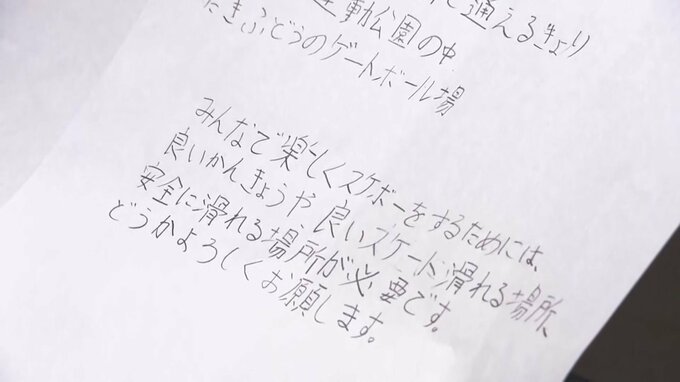 で通えるきょり
運動公園の中
たきふどうのゲートボール場
みんなで楽しくスケボーをするためには、
良いかんきょうや良いスケート滑れる場所、
安全に滑れる場所が必要です。
どうかよろしくお願します。